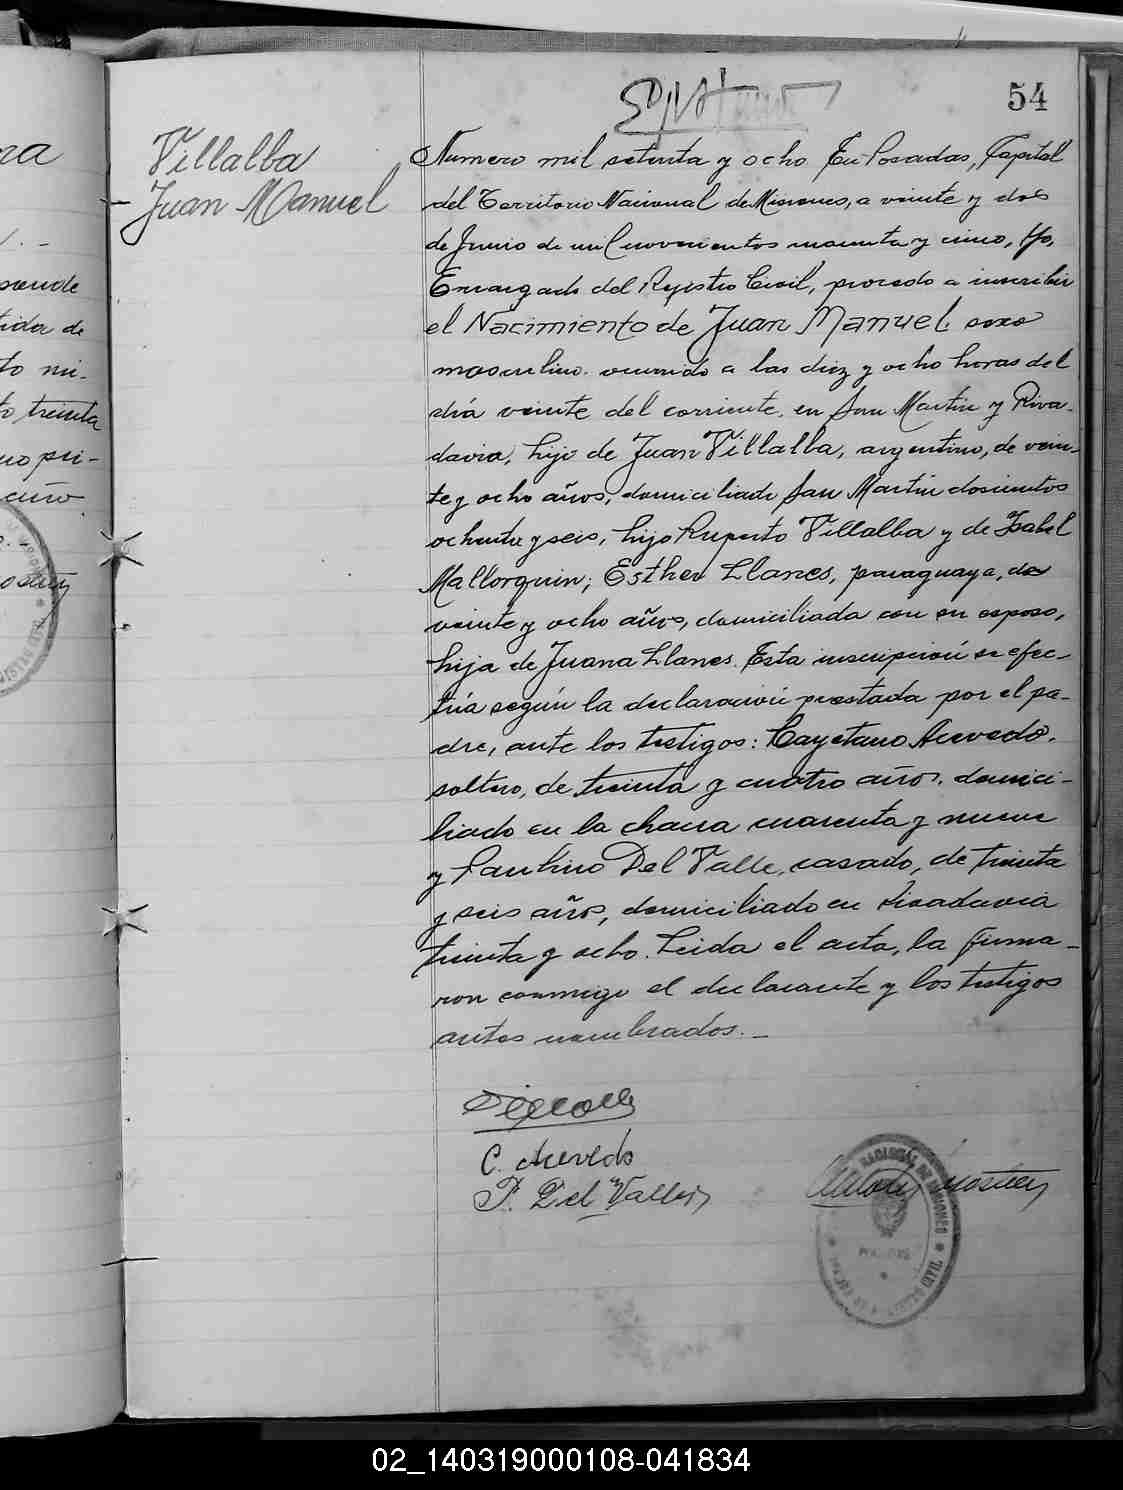 54
Villalba
Juan Manuel
Numero mil setenta y ocho En Posadas, Capital
del Territorio Nacional de Misiones, a veinte y dos
de Junio de mil novecientos cuarenta y cinco, Yo,
Encargado del Registro Civil, procedo a inscribir
el Nacimiento de Juan Manuel, sexo
masculino. ocurrido a las diez y ocho horas del
día veinte del corriente, en San Martin y Riva-
davia, hijo de Juan Villalba, argentino, de vein-
te y ocho años, domiciliado San Martin doscientos
ochenta y seis, hijo Ruperto Villalba y de Isabel
Mallorquin; Esther Llanes, paraguaya, de
veinte y ocho años, domiciliada con su esposo,
hija de Juana Llanes. Esta inscripción se efec-
túa según la declaración prestada por el pa-
dre, ante los testigos: Cayetano Acevedo,
soltero, de treinta y cuatro años, domici-
liado en la chacra cuarenta y nueve
y Paulino Del Valle, casado, de treinta
y seis años, domiciliado en Rivadavia
treinta y ocho. Leida el acta, la firma-
ron conmigo el declarante y los testigos
antes nombrados.-
C. Acevedo
P. Del Valle
ra
/.-
tida de
to mi-
to treinta
no pri-
02_140319000108-041834